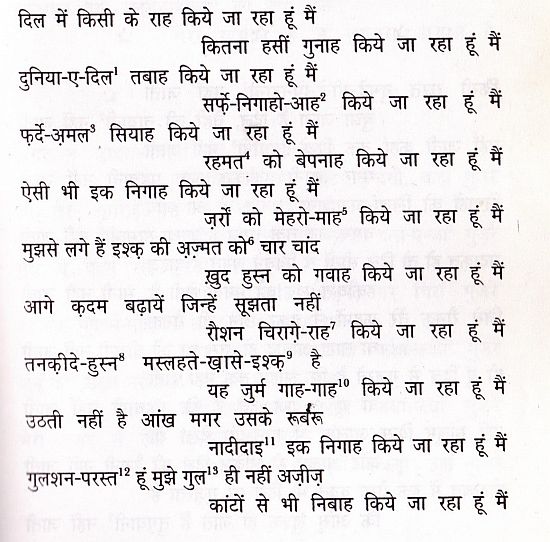 दिल में किसी के राह किये जा रहा हूं मैं
कितना हसीं गुनाह किये जा रहा हूं मैं
दुनिया-ए-दिल¹ तबाह किये जा रहा हूं मैं
सर्फ़े-निगाहो-आह² किये जा रहा हूं मैं
फ़र्दे-अ़मल³ सियाह किये जा रहा हूं मैं
रहमत⁴ को बेपनाह किये जा रहा हूं मैं
ऐसी भी इक निगाह किये जा रहा हूं मैं
ज़र्रों को मेहरो-माह⁵ किये जा रहा हूं मैं
मुझसे लगे हैं इश्क़ की अ़ज़्मत को⁶ चार चांद
ख़ुद हुस्न को गवाह किये जा रहा हूं मैं
आगे क़दम बढ़ायें जिन्हें सूझता नहीं
रौशन चिराग़े-राह⁷ किये जा रहा हूं मैं
तनकीदे-हुस्न⁸ मस्लहते-ख़ासे-इश्क़⁹ है
यह जुर्म गाह-गाह¹⁰ किये जा रहा हूं मैं
उठती नहीं है आंख मगर उसके रूबरू
नादीदाइ¹¹ इक निगाह किये जा रहा हूं मैं
गुलशन-परस्त¹² हूं मुझे गुल¹³ ही नहीं अज़ीज़
कांटों से भी निबाह किये जा रहा हूं मैं